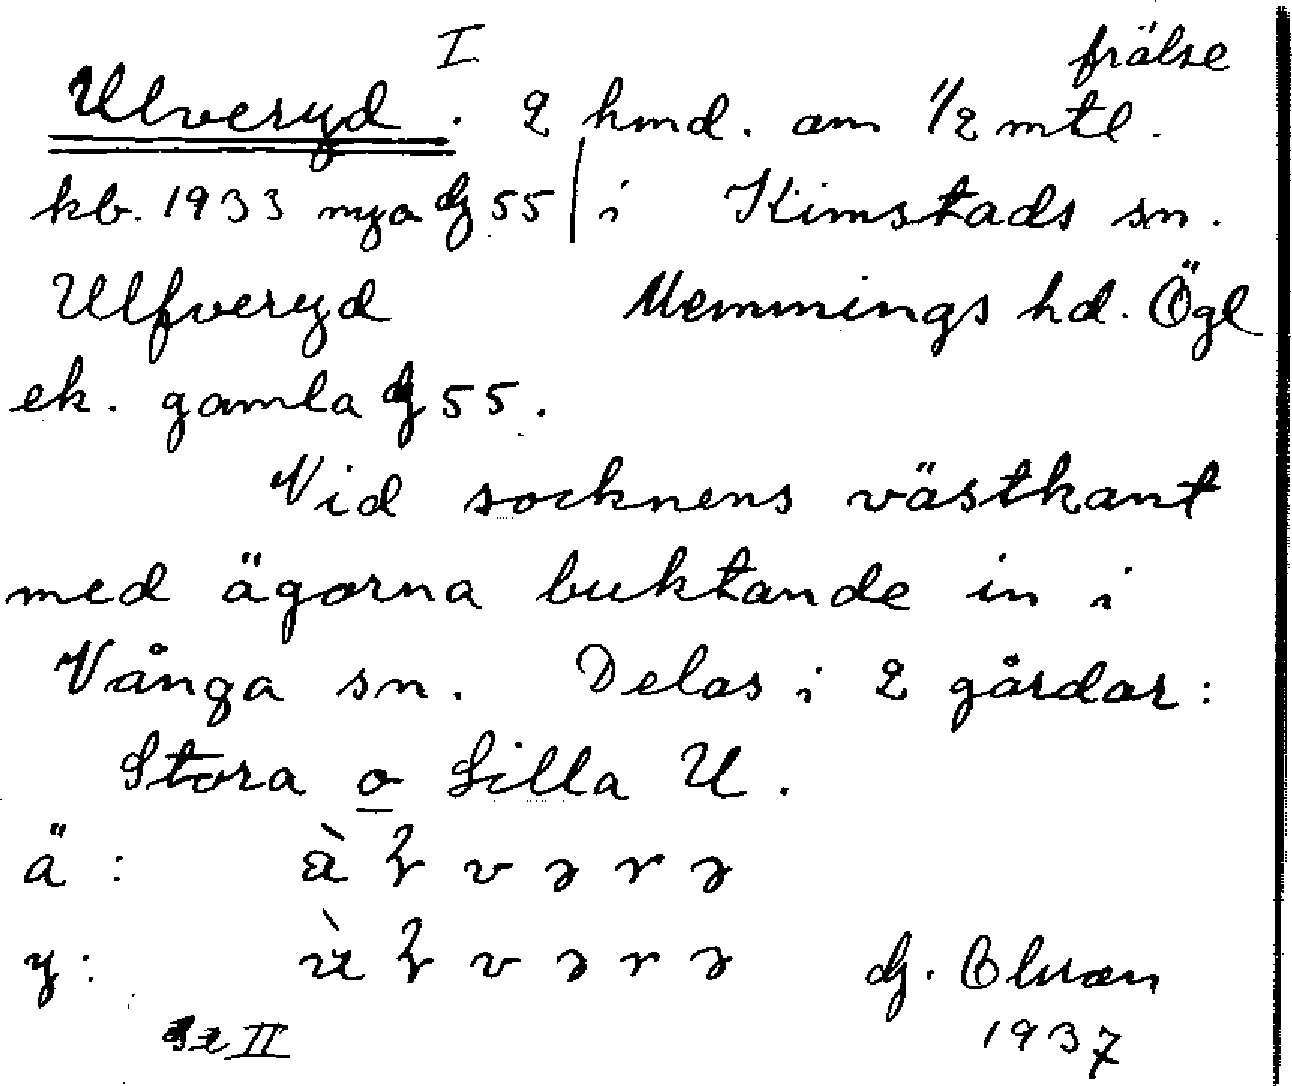 I
frälse
Ulveryd. 2 hmd. om 1/2 mtl.
kb. 1933 nya G 55 | i Kimstads sn.
Ulfveryd Memmings hd. Ögl
ek. gamla G 55.
Vid socknens västkant
med ägorna buktande in i
Vånga sn. Delas i 2 gårdar:
Stora o Lilla U.
ä:
y: 1937
Se II